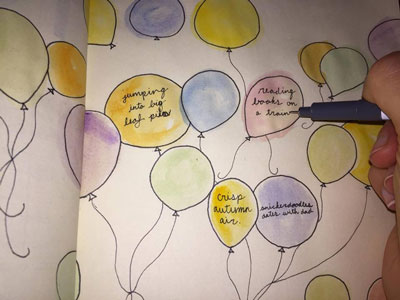 jumping
into big
leaf piles
reading
books on
a train
crisp
autumn
air.
snickerdoodles
dates with dad